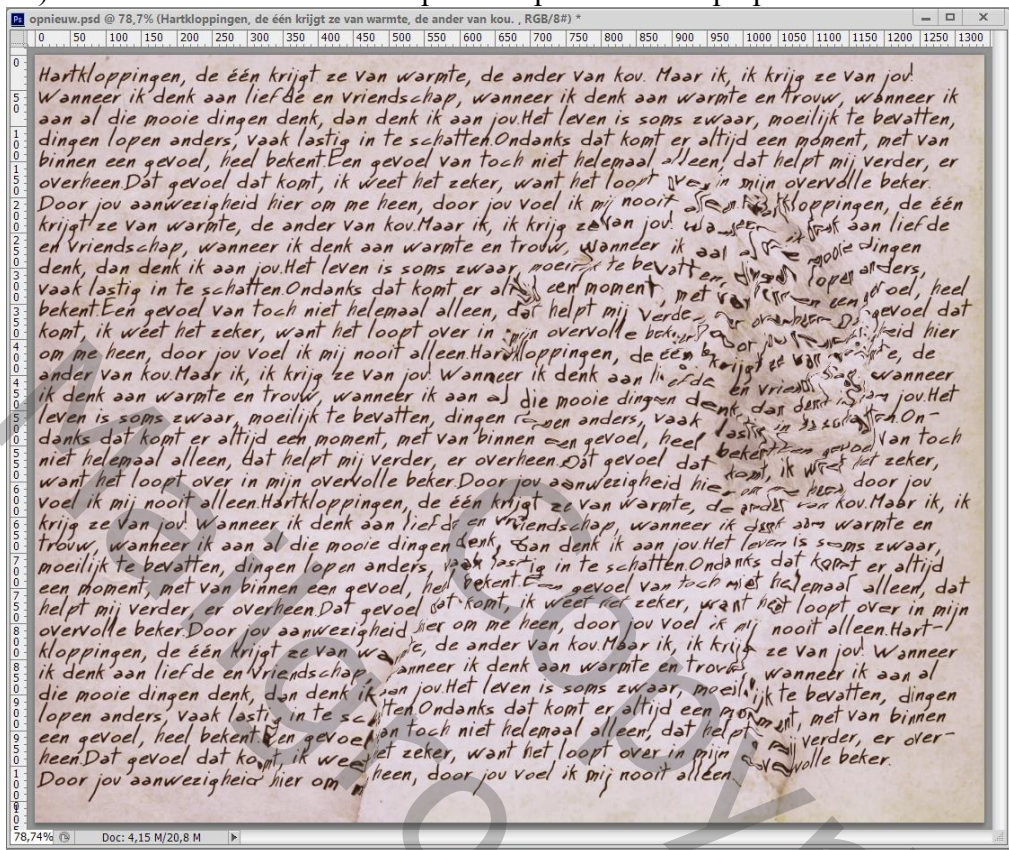 opnieuw.psd @ 78,7% (Hartkloppingen, de één krijgt ze van warmte, de ander van kou. , RGB/8#) *
0 50 100 150 200 250 300 350 400 450 500 550 600 650 700 750 800 850 900 950 1000 1050 1100 1150 1200 1250 1300
Hartkloppingen, de één krijgt ze van warmte, de ander van kou. Maar ik, ik krijg ze van jou!
Wanneer ik denk aan liefde en vriendschap, wanneer ik denk aan warmte en trouw, wanneer ik
aan al die mooie dingen denk, dan denk ik aan jou.Het leven is soms zwaar, moeilijk te bevatten,
dingen lopen anders, vaak lastig in te schatten.Ondanks dat komt er altijd een moment, met van
binnen een gevoel, heel bekent.Een gevoel van toch niet helemaal alleen! dat helpt mij verder, er
overheen.Dat gevoel dat komt, ik weet het zeker, want het loopt over in mijn overvolle beker.
Door jou aanwezigheid hier om me heen, door jou voel ik mij nooit kloppingen, de één
krijgt ze van warmte, de ander van kou.Maar ik, ik krijg ze van jou! aan liefde
en vriendschap, wanneer ik denk aan warmte en trouw, wanneer ik aal mooie dingen
denk, dan denk ik aan jou.Het leven is soms zwaar, te bevatten, lopen anders,
vaak lastig in te schatten.Ondanks dat komt er een moment, met heel
bekent.Een gevoel van toch niet helemaal alleen, dat helpt mij gevoel dat
komt, ik weet het zeker, want het loopt over in mijn overvolle hier
om me heen, door jou voel ik mij nooit alleen.Hartkloppingen, de één de
ander van kou.Maar ik, ik krijg ze van jou! Wanneer ik denk aan liefde en wanneer
ik denk aan warmte en trouw, wanneer ik aan al die mooie dingen denk, dan denk jou.Het
leven is soms zwaar, moeilijk te bevatten, dingen anders, vaak On-
danks dat komt er altijd een moment, met van binnen een gevoel, heel van toch
niet helemaal alleen, dat helpt mij verder, er overheen.Dat gevoel dat komt, ik weet het zeker,
want het loopt over in mijn overvolle beker.Door jou aanwezigheid hier door jou
voel ik mij nooit alleen.Hartkloppingen, de één krijgt ze van warmte, de ander van kou.Maar ik, ik
krijg ze van jou! Wanneer ik denk aan liefde en vriendschap, wanneer ik denk aan warmte en
trouw, wanneer ik aan al die mooie dingen denk, dan denk ik aan jou.Het leven is soms zwaar,
moeilijk te bevatten, dingen lopen anders, vaak lastig in te schatten.Ondanks dat komt er altijd
een moment, met van binnen een gevoel, heel bekent.Een gevoel van toch niet helemaal alleen, dat
helpt mij verder, er overheen.Dat gevoel dat komt, ik weet het zeker, want het loopt over in mijn
overvolle beker.Door jou aanwezigheid hier om me heen, door jou voel ik mij nooit alleen.Hart-
kloppingen, de één krijgt ze van de ander van kou.Maar ik, ik krijg ze van jou! Wanneer
ik denk aan liefde en vriendschap, wanneer ik denk aan warmte en trouw wanneer ik aan al
die mooie dingen denk, dan denk ik aan jou.Het leven is soms zwaar, moeilijk te bevatten, dingen
lopen anders, vaak lastig in te schatten.Ondanks dat komt er altijd een moment, met van binnen
een gevoel, heel bekent.Een gevoel van toch niet helemaal alleen, dat helpt verder, er over-
heen.Dat gevoel dat komt, ik weet het zeker, want het loopt over in mijn overvolle beker.
Door jou aanwezigheid hier om heen, door jou voel ik mij nooit alleen.
78,74% Doc: 4,15 M/20,8 M